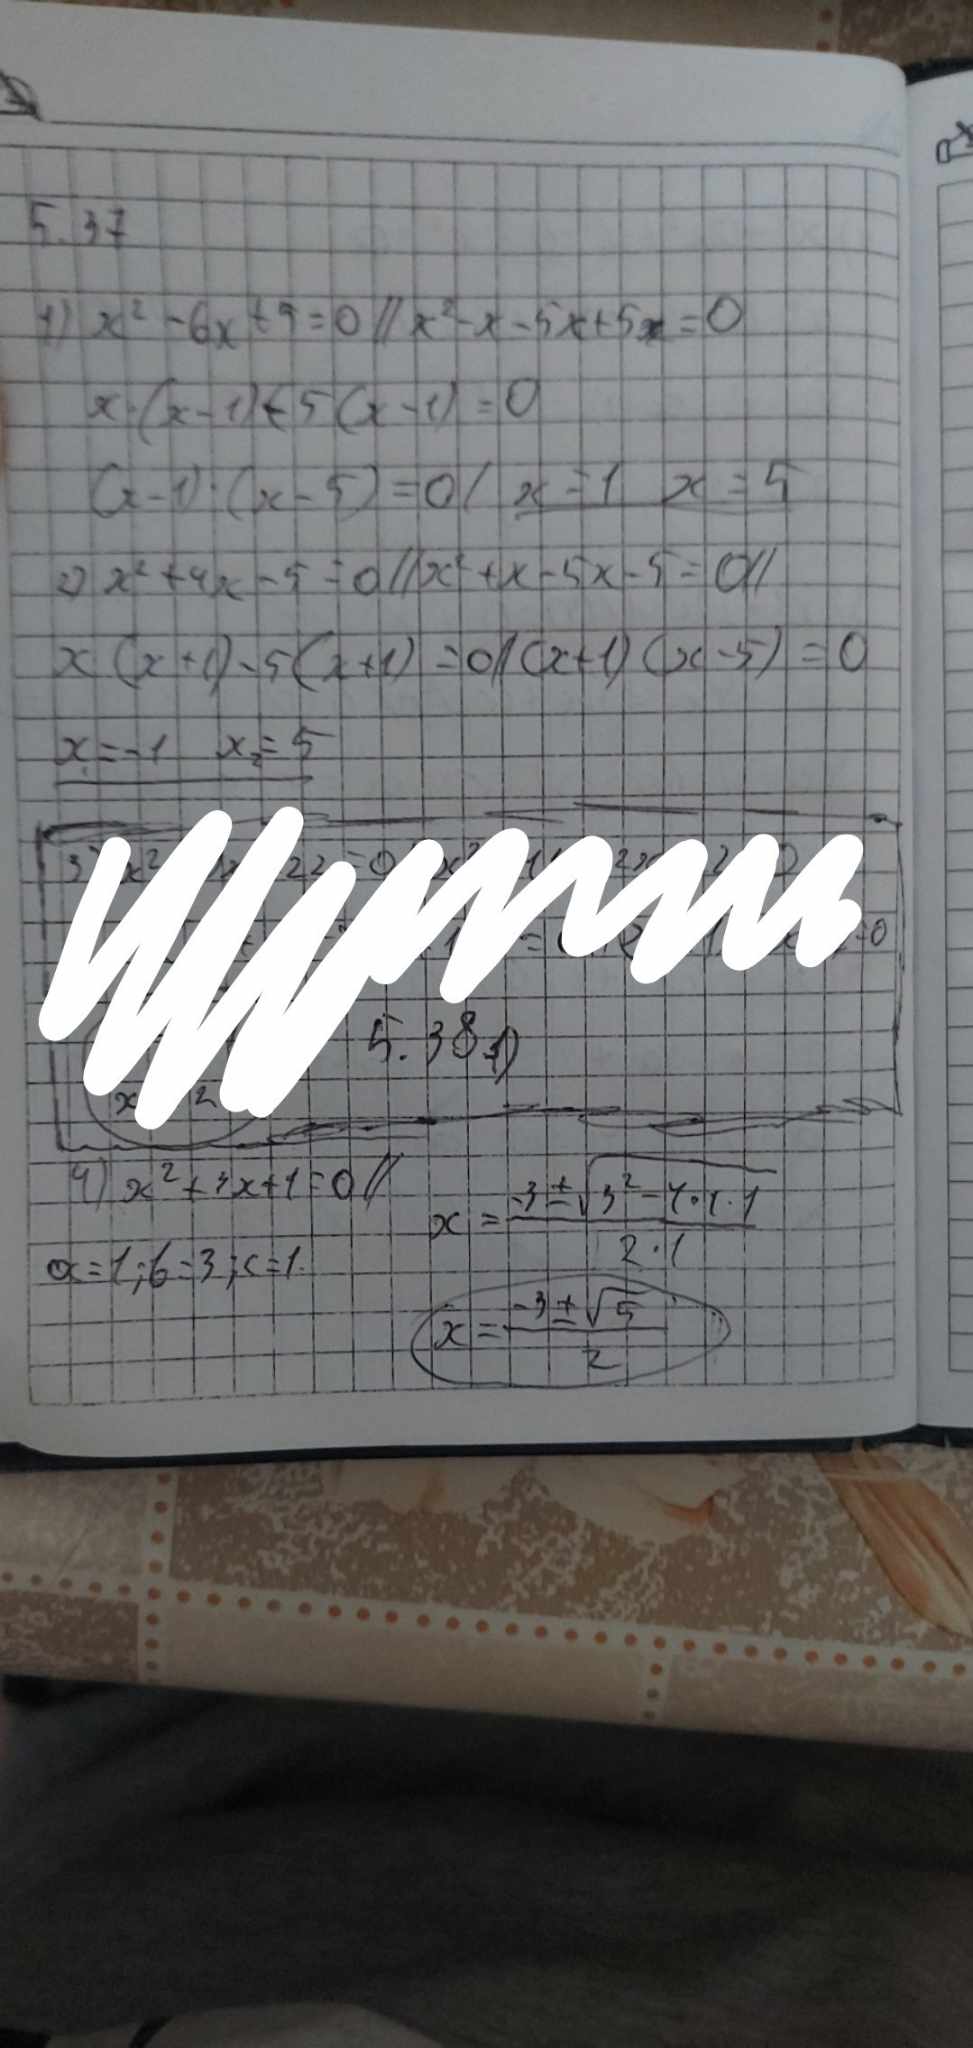 5.37
1) x² - 6x + 9 = 0 // x² - x - 5x + 5x = 0
x · (x - 1) - 5 (x - 1) = 0
(x - 1) · (x - 5) = 0 / x = 1 x = 5
2) x² + 4x - 5 = 0 // x² + x - 5x - 5 = 0 //
x (x + 1) - 5 (x + 1) = 0 // (x + 1) (x - 5) = 0
x₁ = -1 x₂ = 5
5.38 1)
4) x² + 3x + 1 = 0 //
x = (-3 ± √(3² - 4 · 1 · 1)) / (2 · 1)
a = 1; b = 3; c = 1.
x = (-3 ± √5) / 2